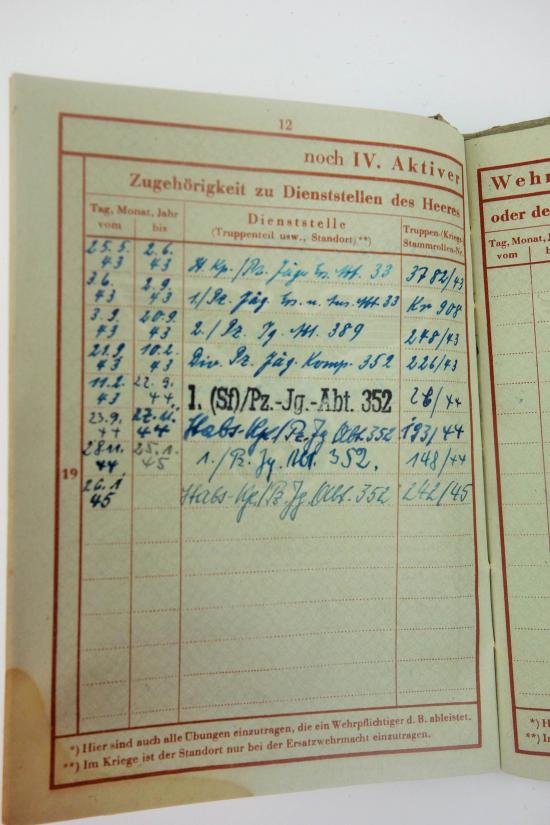 12
noch IV. Aktiver
Zugehörigkeit zu Dienststellen des Heeres
Tag, Monat, Jahr
vom bis
Dienststelle
(Truppenteil usw., Standort)**)
Truppen-/Kriegs-
Stammrollen-Nr.
25.5. 43 2.6. 43 Kp./Pz. Jäger Ers. Abt. 33 3782/43
3.6. 43 2.9. 43 1/Pz. Jäg. Ers. u. Abt. 33 Kr 908
3.9. 43 20.9. 43 2./Pz. Jg. Abt. 389 248/43
21.9. 43 10.2. 43 Div. Pz. Jäg. Komp. 352 226/43
11.2. 43 22.9. 44 1. (Sf)/Pz.-Jg.-Abt. 352 26/44
23.9. 44 27.11. 44 Stabs-Kp./Pz. Jg. Abt. 352 193/44
28.11. 44 25.1. 45 1./Pz. Jg. Abt. 352. 148/44
19
26.1 45 Stabs-Kp./Pz. Jg. Abt. 352 242/45
*) Hier sind auch alle Übungen einzutragen, die ein Wehrpflichtiger d. B. ableistet.
**) Im Kriege ist der Standort nur bei der Ersatzwehrmacht einzutragen.
Wehr
oder de
Tag, Monat, J
vom
*) H
**) In